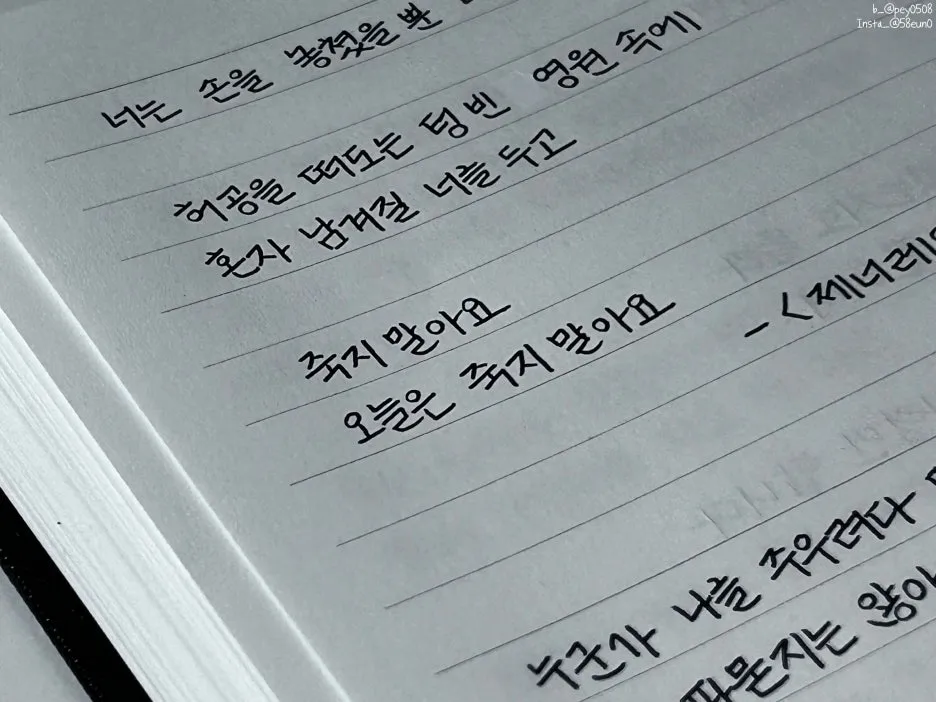 b_@pey0508
Insta_@58eun0
너는 손을 놓쳤을 뿐
허공을 떠도는 텅 빈 영원 속에
혼자 남겨질 너를 두고
죽지 말아요
오늘은 죽지 말아요
- <제너레
누군가 나를 주우려다
파묻지는 않아